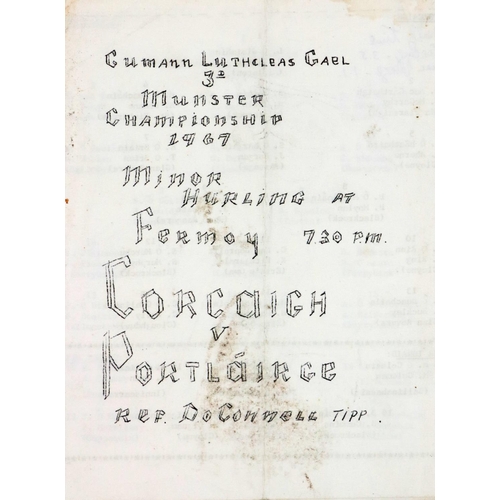 Cumann Luthcleas Gael
3d
Munster
Championship
1967
Minor
Hurling at
Fermoy 7.30 P.M.
Corcaigh
v
Portláirge
Ref. D O Connell Tipp.